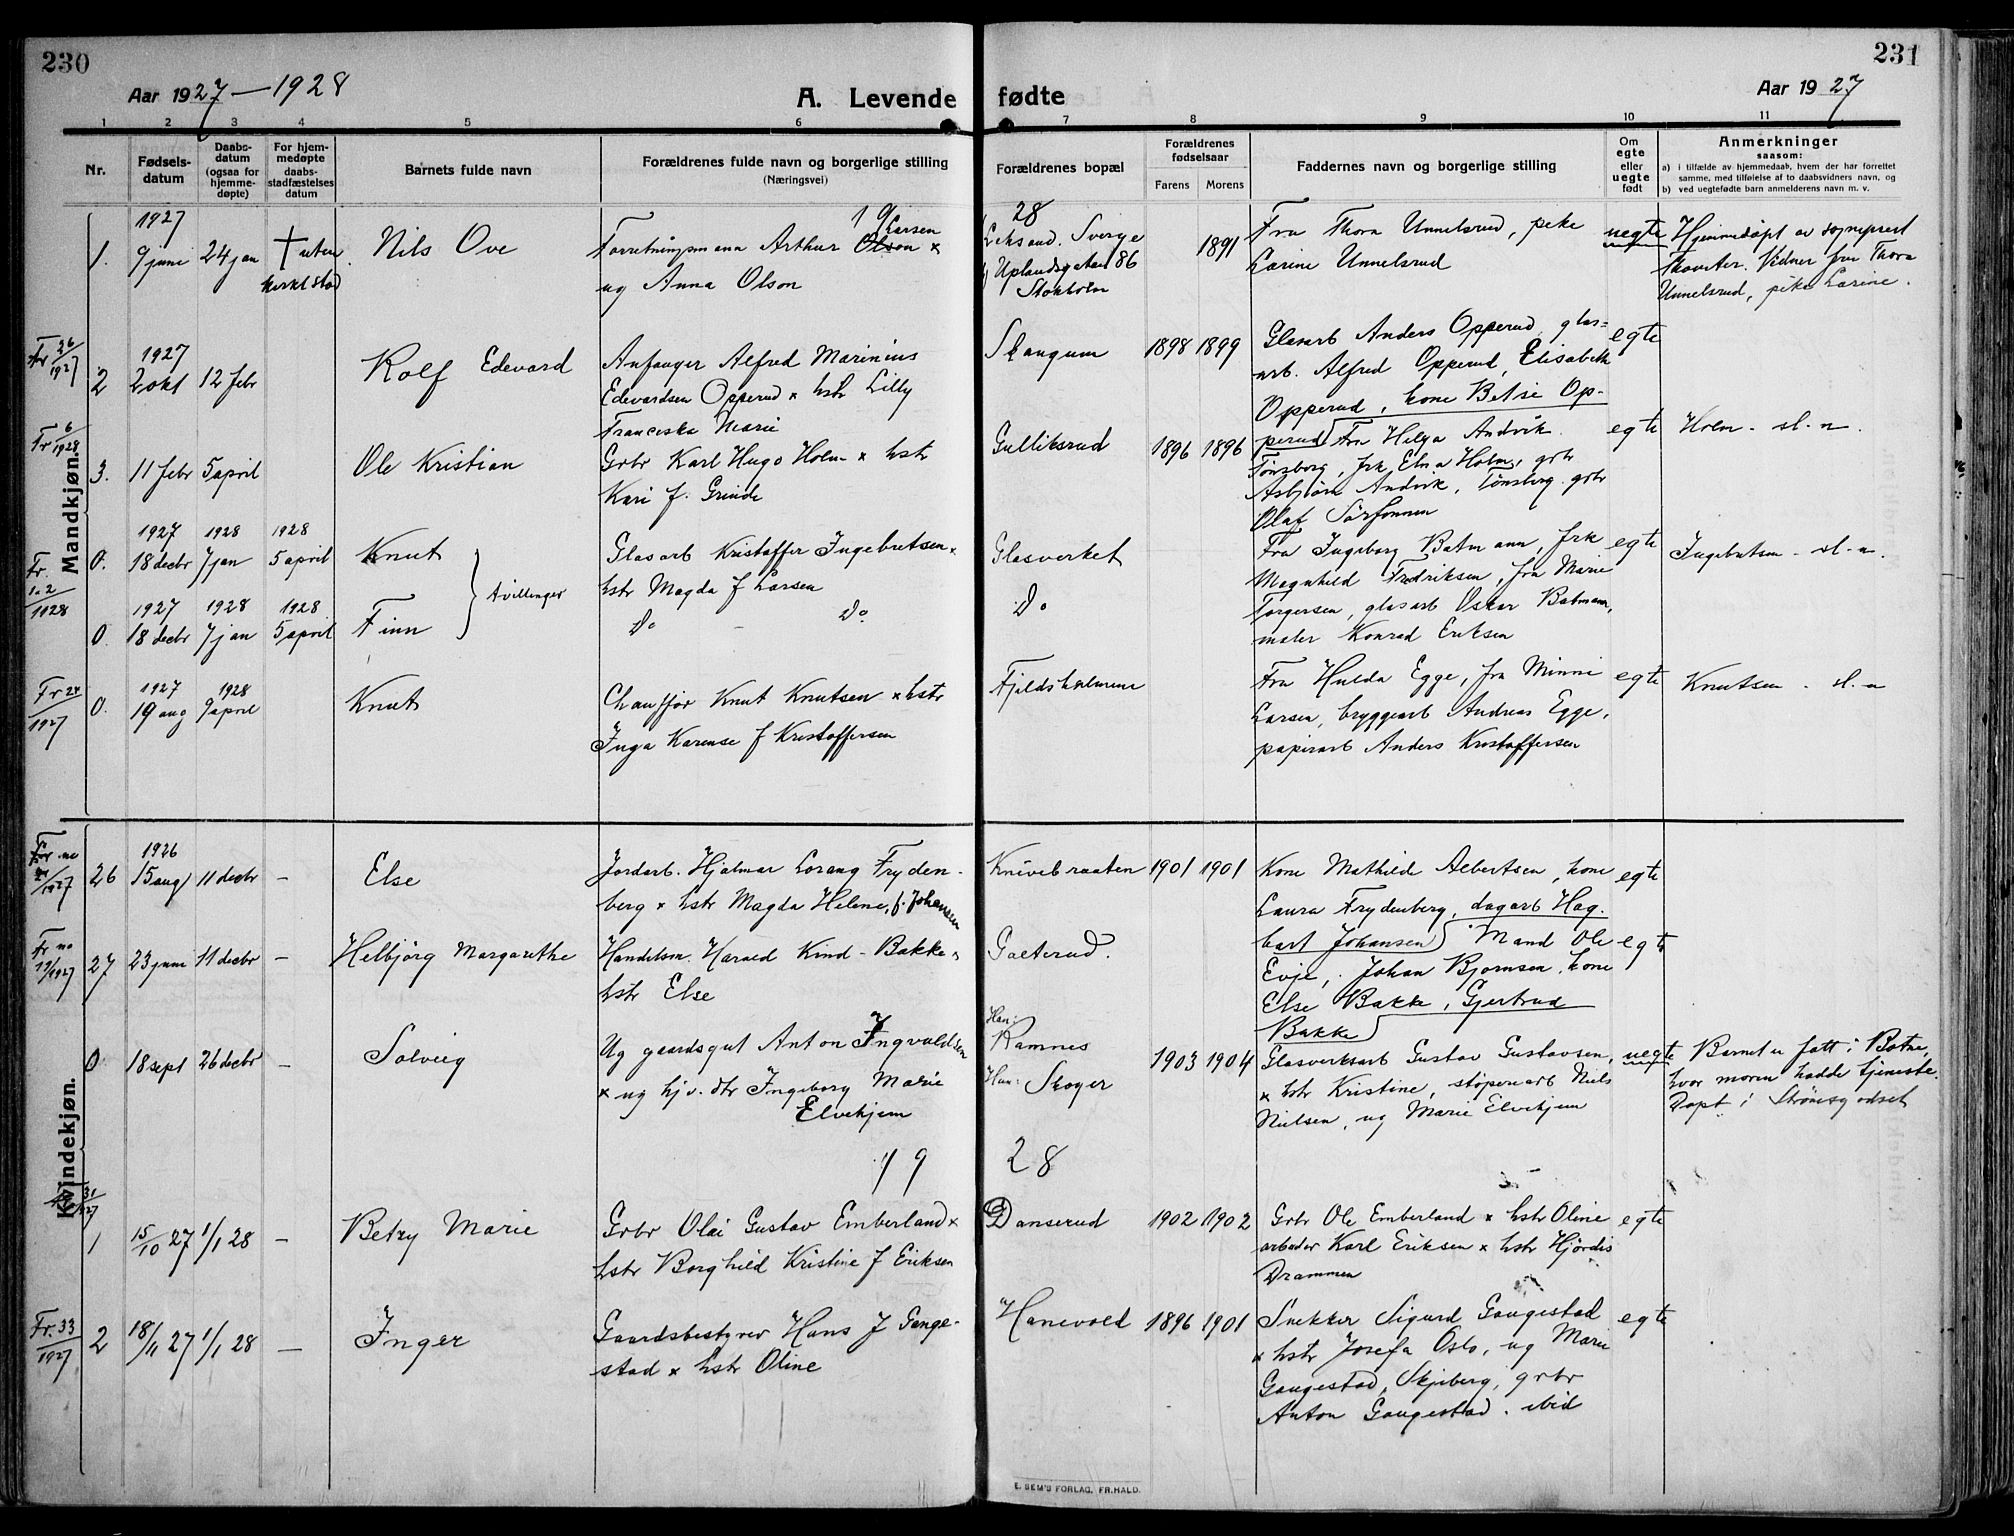 230
231
Aar 1927 — 1928
A. Levende
fødte
Aar 1927
1 2 3 4 5 6 7 8 9 10 11
Nr.
Fødsels-
datum
Daabs-
datum
(ogsaa for
hjemme-
døpte)
For hjem-
medøpte
daabs-
stadfæstelses
datum
Barnets fulde navn
Forældrenes fulde navn og borgerlige stilling
(Næringsvei)
Forældrenes bopæl
Forældrenes
fødselsaar
Farens Morens
Faddernes navn og borgerlige stilling
Om
egte
eller
uegte
født
Anmerkninger
saasom:
a) i tilfælde av hjemmedaab, hvem der har forrettet
samme, med tilføielse af to daabsvidners navn, og
b) ved uegtefødte barn anmelderens navn m. v.
Mandkjøn.
19
28
1927
1. 9 juni 24 jan † uten
kirkl stad
Nils Ove
Larsen
Forretningsmann Arthur Olson x
ug Anna Olson
Leksand. Sverge
Uplandsgatan 86
Stokholm
1891
Fru Thora Unnelsrud, pike
Larine Unnelsrud
uegte
Hjemmedøpt av sogneprest
Vidner fru Thora
Unnelsrud, pike Larine.
Fr 26
1927
1927
2 2 okt 12 febr
Rolf Edevard
Anfanger Alfred Marinius
Edevardsen Opperud x hstr Lilly
Franciska Marie
Skaugum
1898 1899
Glasarb Anders Opperud, glas-
arb. Alfred Opperud, Elisabeth
Opperud, kone Betsi Op-
perud
egte
Fr 6
1928
3. 11 febr 5 april
Ole Kristian
Grbr Karl Hugo Holm x hstr
Kari f. Grinde
Gulliksrud
1896 1896
Fru Helga Andvik
Tønsberg, frk Elna Holm, grbr
Asbjørn Andvik, Tønsberg. grbr
Olaf Sørfonnen
egte
Holm - sl. n.
Fr.
1 2
1928
1927 1928 1928
0. 18 decbr 7 jan 5 april
Knut
Tvillinger
Glasarb Kristoffer Ingebretsen x
hstr Magda f Larsen
Glasverket
Fra Ingeborg Batmann, frk
Magnhild Fredriksen, fru Marie
Torgersen, glasarb Oskar Batmann,
maler Konrad Eriksen
egte
Ingebretsen - sl. n.
1927 1928 1928
0. 18 decbr 7 jan 5 april
Finn
Do - Do
Do
Fr 24
1927
1927 1928
0. 19 aug 9 april
Knut
Chauffør Knut Knutsen x hstr
Inga Karense f Kristoffersen
Fjeldsholmene
Fru Hulda Egge, fru Minni
Larsen, bryggearb Andreas Egge,
papirarb Anders Kristoffersen
egte
Knutsen - sl. n
Kvindekjøn.
Fr no
1927
1926
26 15 aug 11 decbr —
Else
Jordarb. Hjalmar Lorang Fryden-
berg x hstr Magda Helene, f. Johansen
Knivebraaten
1901 1901
Kone Mathilde Albertsen, kone
Laura Frydenberg, dagarb Hag.
bart Johansen
egte
Fr no
19/1927
27 23 juni 11 decbr —
Helbjørg Margarethe
Handelsm. Harald Kind-Bakke x
hstr Else
Gaeterud.
Mand Ole
Evje, Johan Bjørnsen, kone
Else Bakke, Gjertrud
Bakke
egte
0 18 sept 26 decbr —
Solveig
Ug gaardsgut Anton Ingvaldsen
x ug hjv. dtr Ingeborg Marie
Elvehjem
Han:
Ramnes
Hun: Skoger
1903 1904
Glasverksarb Gustav Gustavsen,
x hstr Kristine, støperiarb Niels
Nielsen, ug Marie Elvehjem
uegte
Barnet er født i Botne,
hvor moren hadde tjeneste.
Døpt i Strømsgodset
19
28
31
27
1 15/10 27 1/1 28 —
Betzy Marie
Grbr Olai Gustav Emberland x
hstr Borghild Kristine f Eriksen
Danserud
1902 1902
Grbr Ole Emberland x hstr Oline
arbeder Karl Eriksen x hstr Hjørdis
Drammen
egte
Fr. 33
1927
2 18/11 27 1/1 28 —
Inger
Gaardsbestyrer Hans J Gauge-
stad x hstr Oline
Hanevold
1896 1901
Snekker Sigurd Gaugestad
x hstr Josefa Oslo, ug Marie
Gaugestad, Skjeberg, grbr
Anton Gaugestad. ibid
egte
E. SEM'S FORLAG, FR.HALD.